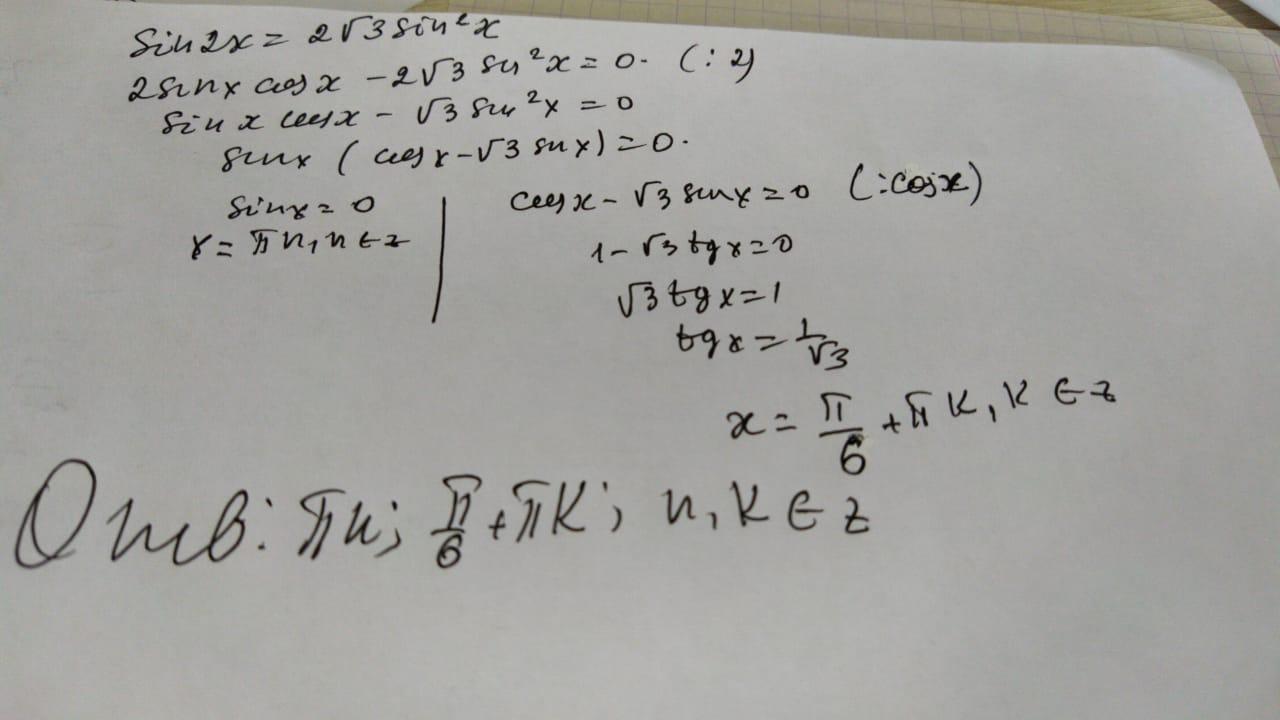 sin2x = 2√3 sin²x
2sinx cosx - 2√3 sin²x = 0. (: 2)
sin x cosx - √3 sin²x = 0
sinx ( cosx - √3 sinx) = 0.
sinx = 0
x = πn, n ∈ z
cosx - √3 sinx = 0 (:cosx)
1 - √3 tgx = 0
√3 tgx = 1
tgx = 1/√3
x = π/6 + πk, k ∈ z
Ответ: πn; π/6 + πk; n, k ∈ z